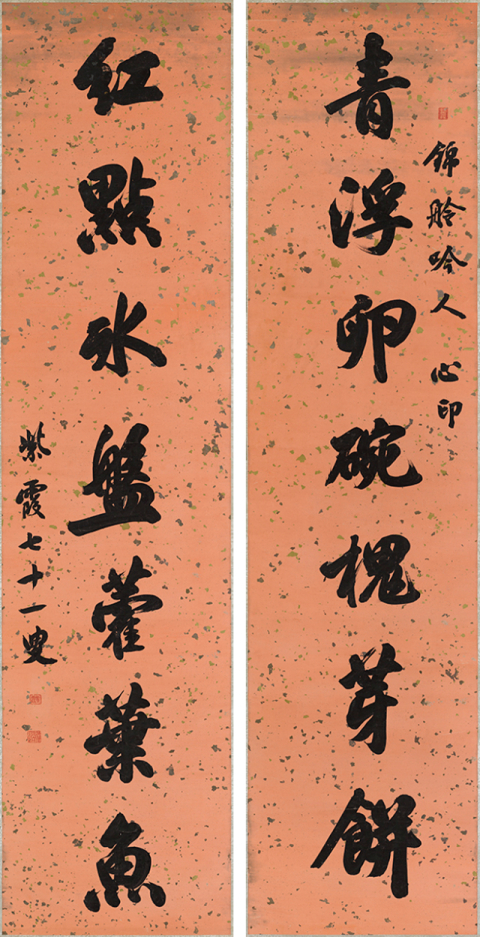 錦舲吟人心印
青浮卵碗槐芽餅
紅點氷盤藿葉魚
紫霞七十一叟